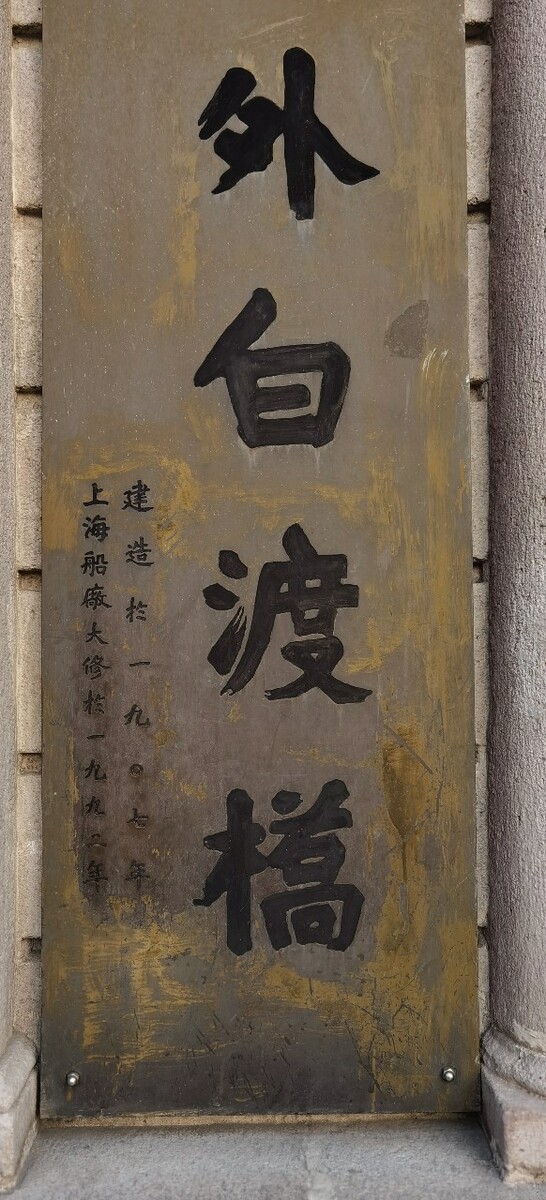 外白渡橋
建造於一九〇七年
上海船廠大修於一九九二年